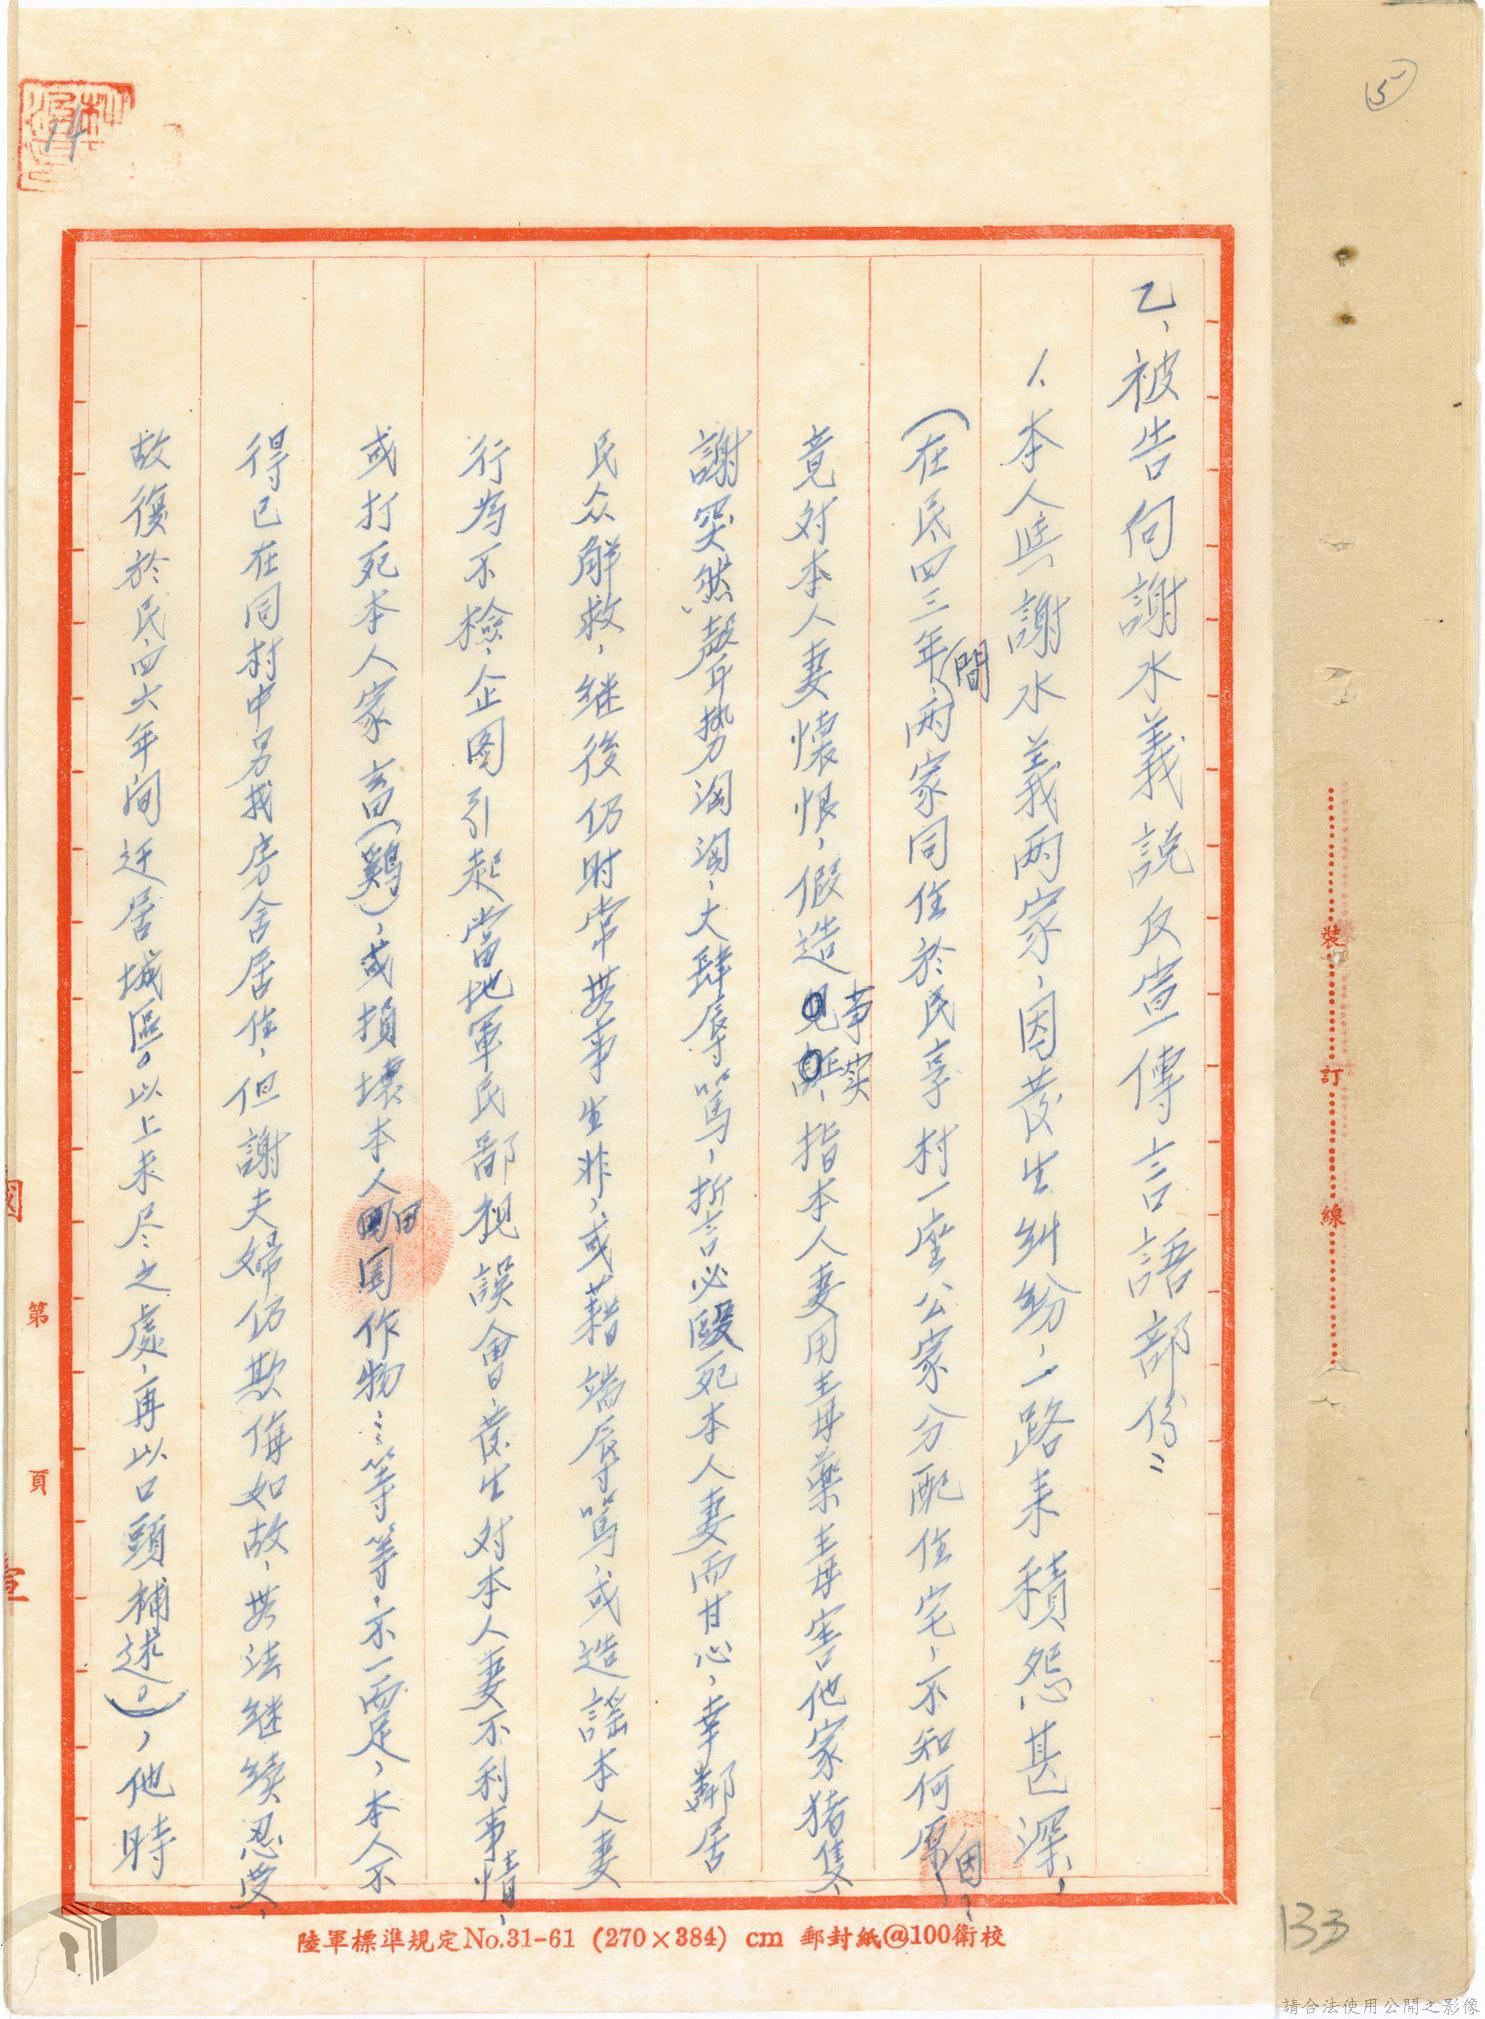 乙、被告向謝水義說反宣傳言語部份：
1.本人與謝水義两家，因發生糾紛，一路来積怨甚深，
（在民、四三年間，两家同住於民享村一座公家分配住宅，不知何原因，
竟对本人妻懷恨，假造事实，指本人妻用毒藥毒害他家猪隻、
謝突然聲势洶洶，大肆辱罵，誓言必毆死本人妻而甘心，幸鄰居
民众解救，继後仍时常無事生非，或藉端辱罵，或造謠本人妻
行為不檢，企图引起當地軍民鄙視誤會，發生对本人妻不利事情，
或打死本人家畜（鷄），或損壞本人田園作物……等等，不一而足，本人不
得已在同村中另找房舍居住，但謝夫婦仍欺侮如故，無法继續忍受，
故復於民、四六年间迁居城區。以上未尽之處，再以口頭補述。），他時
陸軍標準規定No.31-61 (270×384) cm 郵封紙@100衛校
裝
訂
線
第
頁
5
133
請合法使用公開之影像